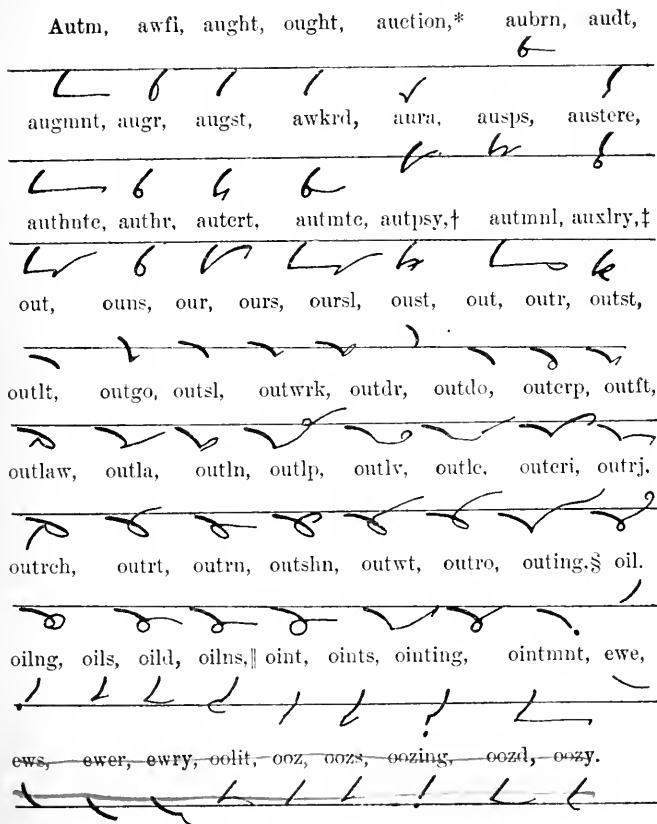 Autm, awfi, aught, ought, auction,* aubrn, audt,
augmnt, augr, augst, awkrd, aura, ausps, austere,
authntc, authr, autcrt, autmtc, autpsy,† autmnl, auxlry,‡
out, ouns, our, ours, oursl, oust, out, outr, outst,
outlt, outgo, outsl, outwrk, outdr, outdo, outcrp, outft,
outlaw, outla, outln, outlp, outlv, outlc, outcri, outrj.
outrch, outrt, outrn, outshn, outwt, outro, outing.§ oil.
oilng, oils, oild, oilns,‖ oint, oints, ointing, ointmnt, ewe,
ews, ewer, ewry, oolit, ooz, oozs, oozing, oozd, oozy.